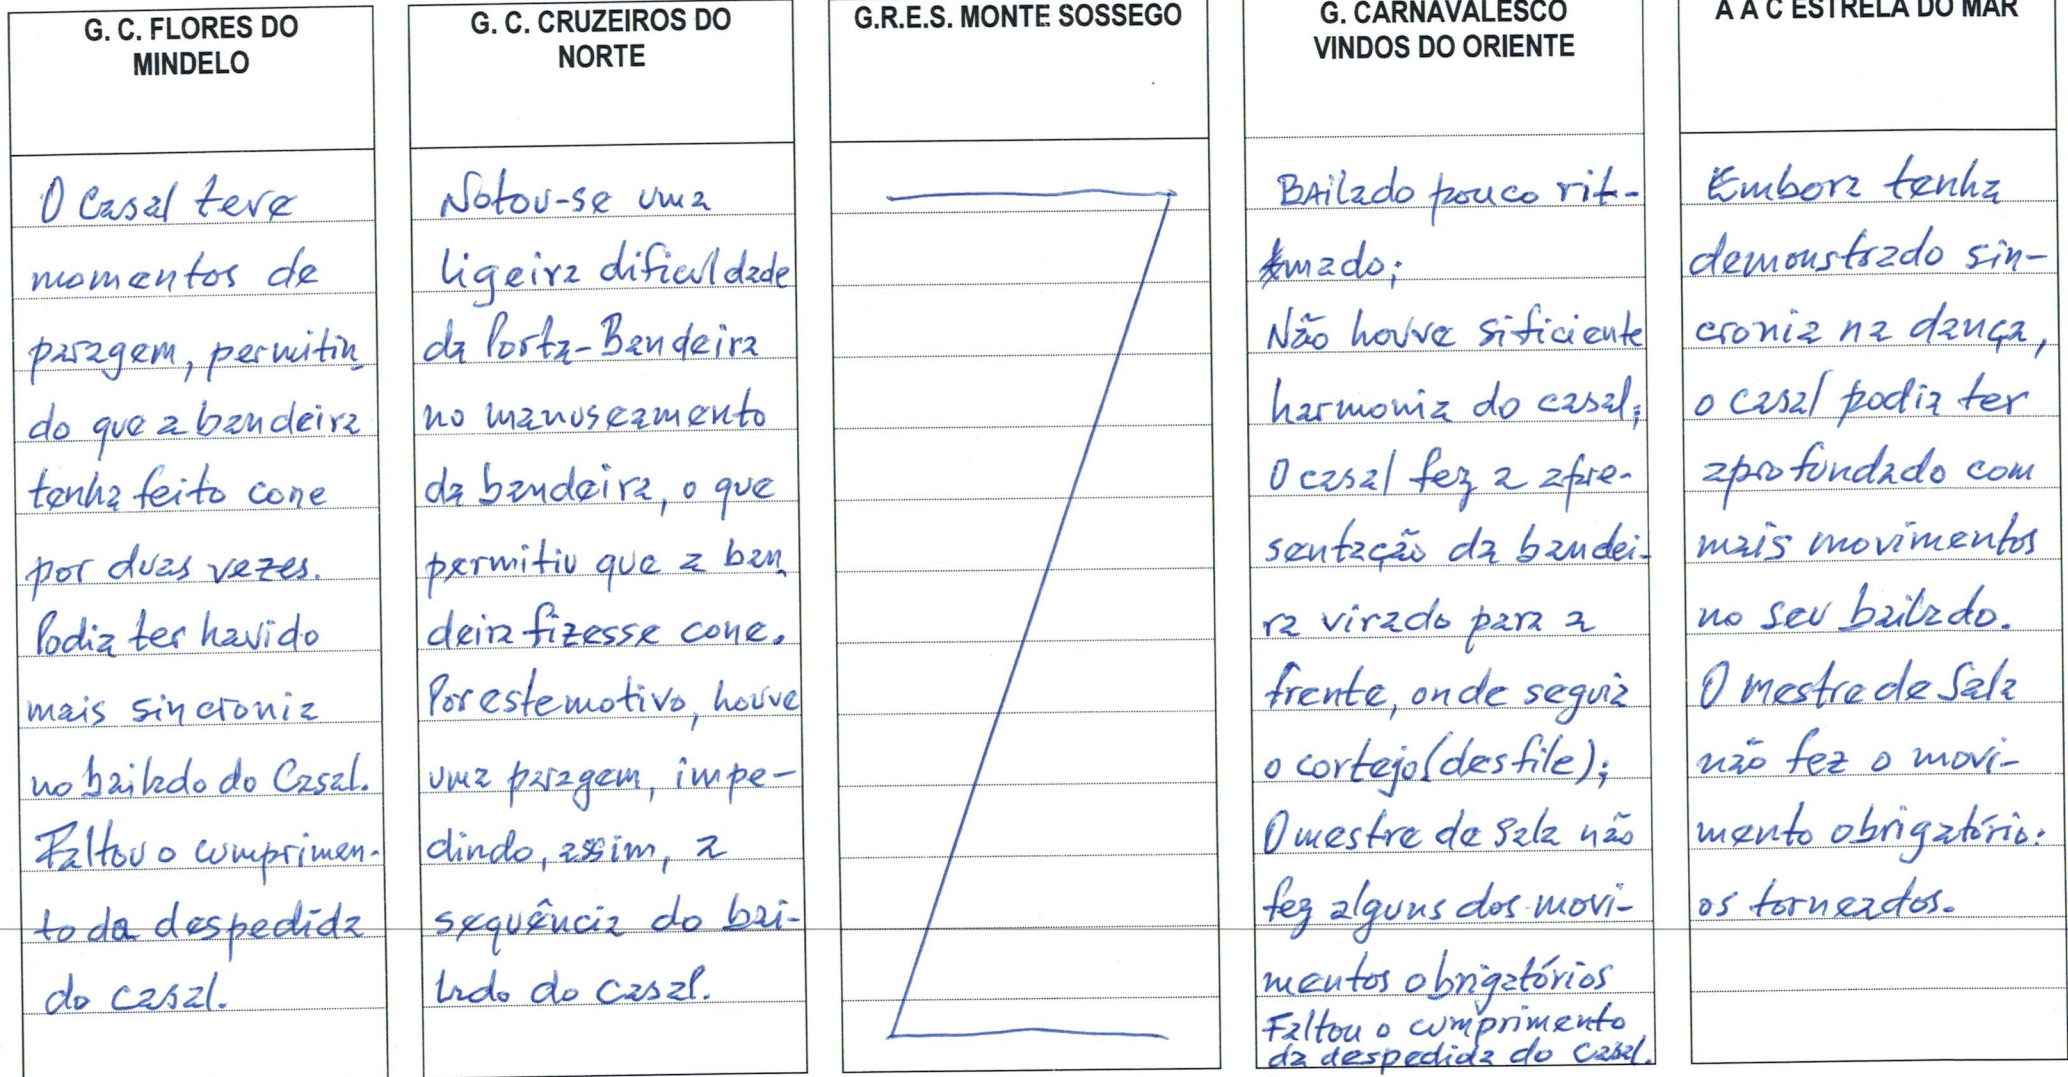 G. C. FLORES DO
MINDELO
O Casal teve
momentos de
paragem, permitin_
do que a bandeira
tenha feito cone
por duas vezes.
Podia ter havido
mais sincronia
no bailado do Casal.
Faltou o cumprimen-
to da despedida
do casal.
G. C. CRUZEIROS DO
NORTE
Notou-se uma
ligeira dificuldade
da Porta-Bandeira
no manuseamento
da bandeira, o que
permitiu que a ban_
deira fizesse cone.
Por este motivo, houve
uma paragem, impe-
dindo, assim, a
sequência do bai-
lado do casal.
G.R.E.S. MONTE SOSSEGO
G. CARNAVALESCO
VINDOS DO ORIENTE
Bailado pouco rit-
mado;
Não houve sificiente
harmonia do casal;
O casal fez a apre-
sentação da bandei-
ra virado para a
frente, onde seguia
o cortejo (desfile);
O mestre de Sala não
fez alguns dos movi-
mentos obrigatórios
Faltou o cumprimento
da despedida do casal.
A A C ESTRELA DO MAR
Embora tenha
demonstrado sin-
cronia na dança,
o casal podia ter
aprofundado com
mais movimentos
no seu bailado.
O Mestre de Sala
não fez o movi-
mento obrigatório:
os torneados.